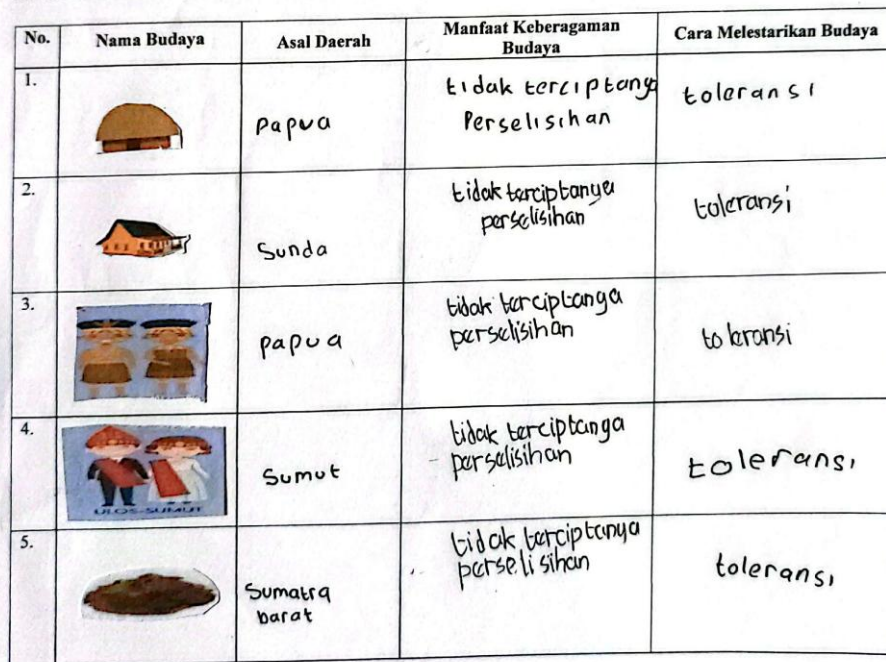 No.
Nama Budaya
Asal Daerah
Manfaat Keberagaman
Budaya
Cara Melestarikan Budaya
1.
Papua
tidak terciptanya
Perselisihan
toleransi
2.
Sunda
tidak terciptanya
perselisihan
toleransi
3.
papua
tidak terciptanya
perselisihan
toleransi
4.
ULOS-SUMUT
Sumut
tidak terciptanya
perselisihan
toleransi
5.
Sumatra
barat
tidak terciptanya
perselisihan
toleransi